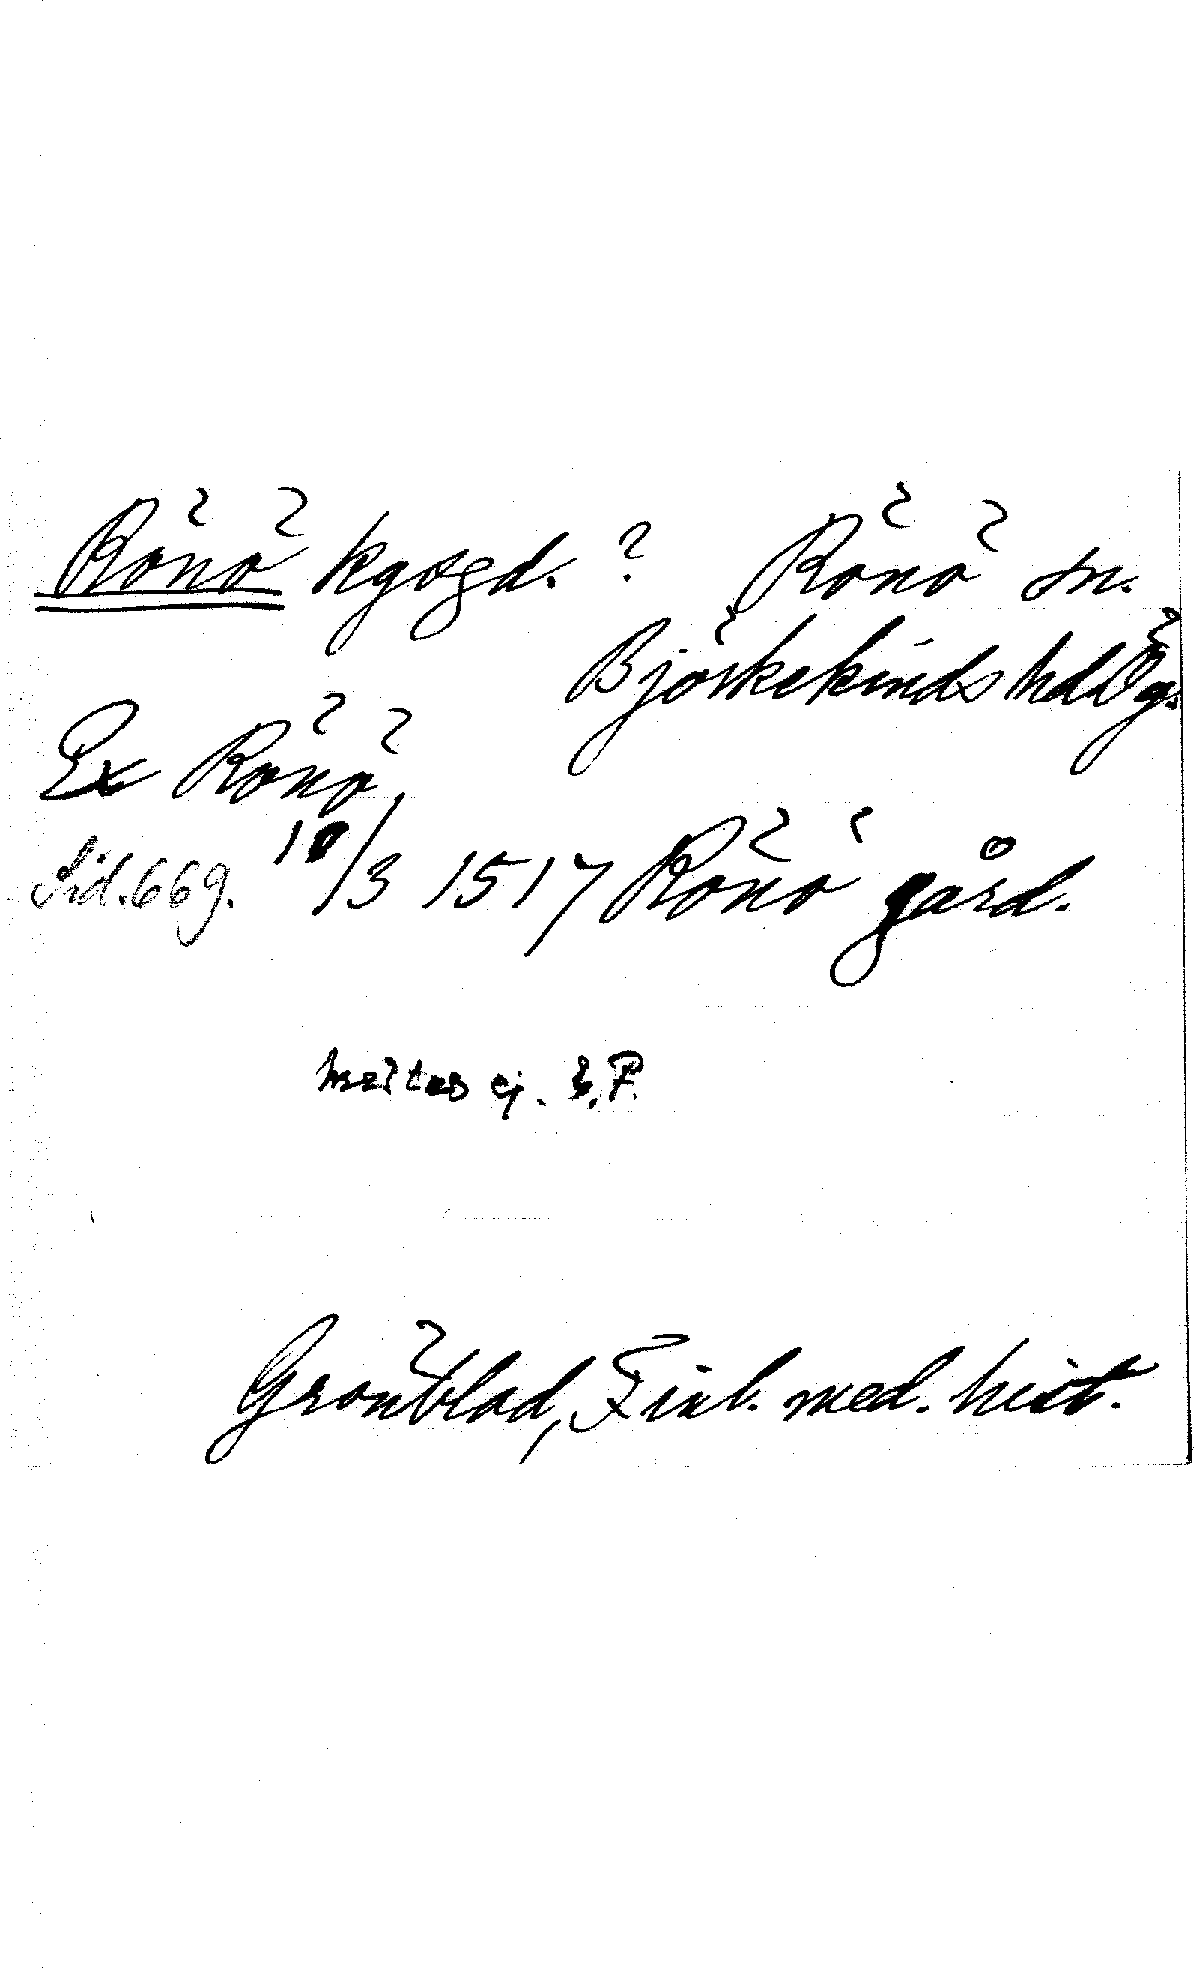 Rönö kgsgd. ? Rönö sn.
Björkekinds hd Ög.
Ex Rönö
Sid. 669. 18/3 1517 Rönö gård.
ej.
Grönblad, Finl. med. hist.